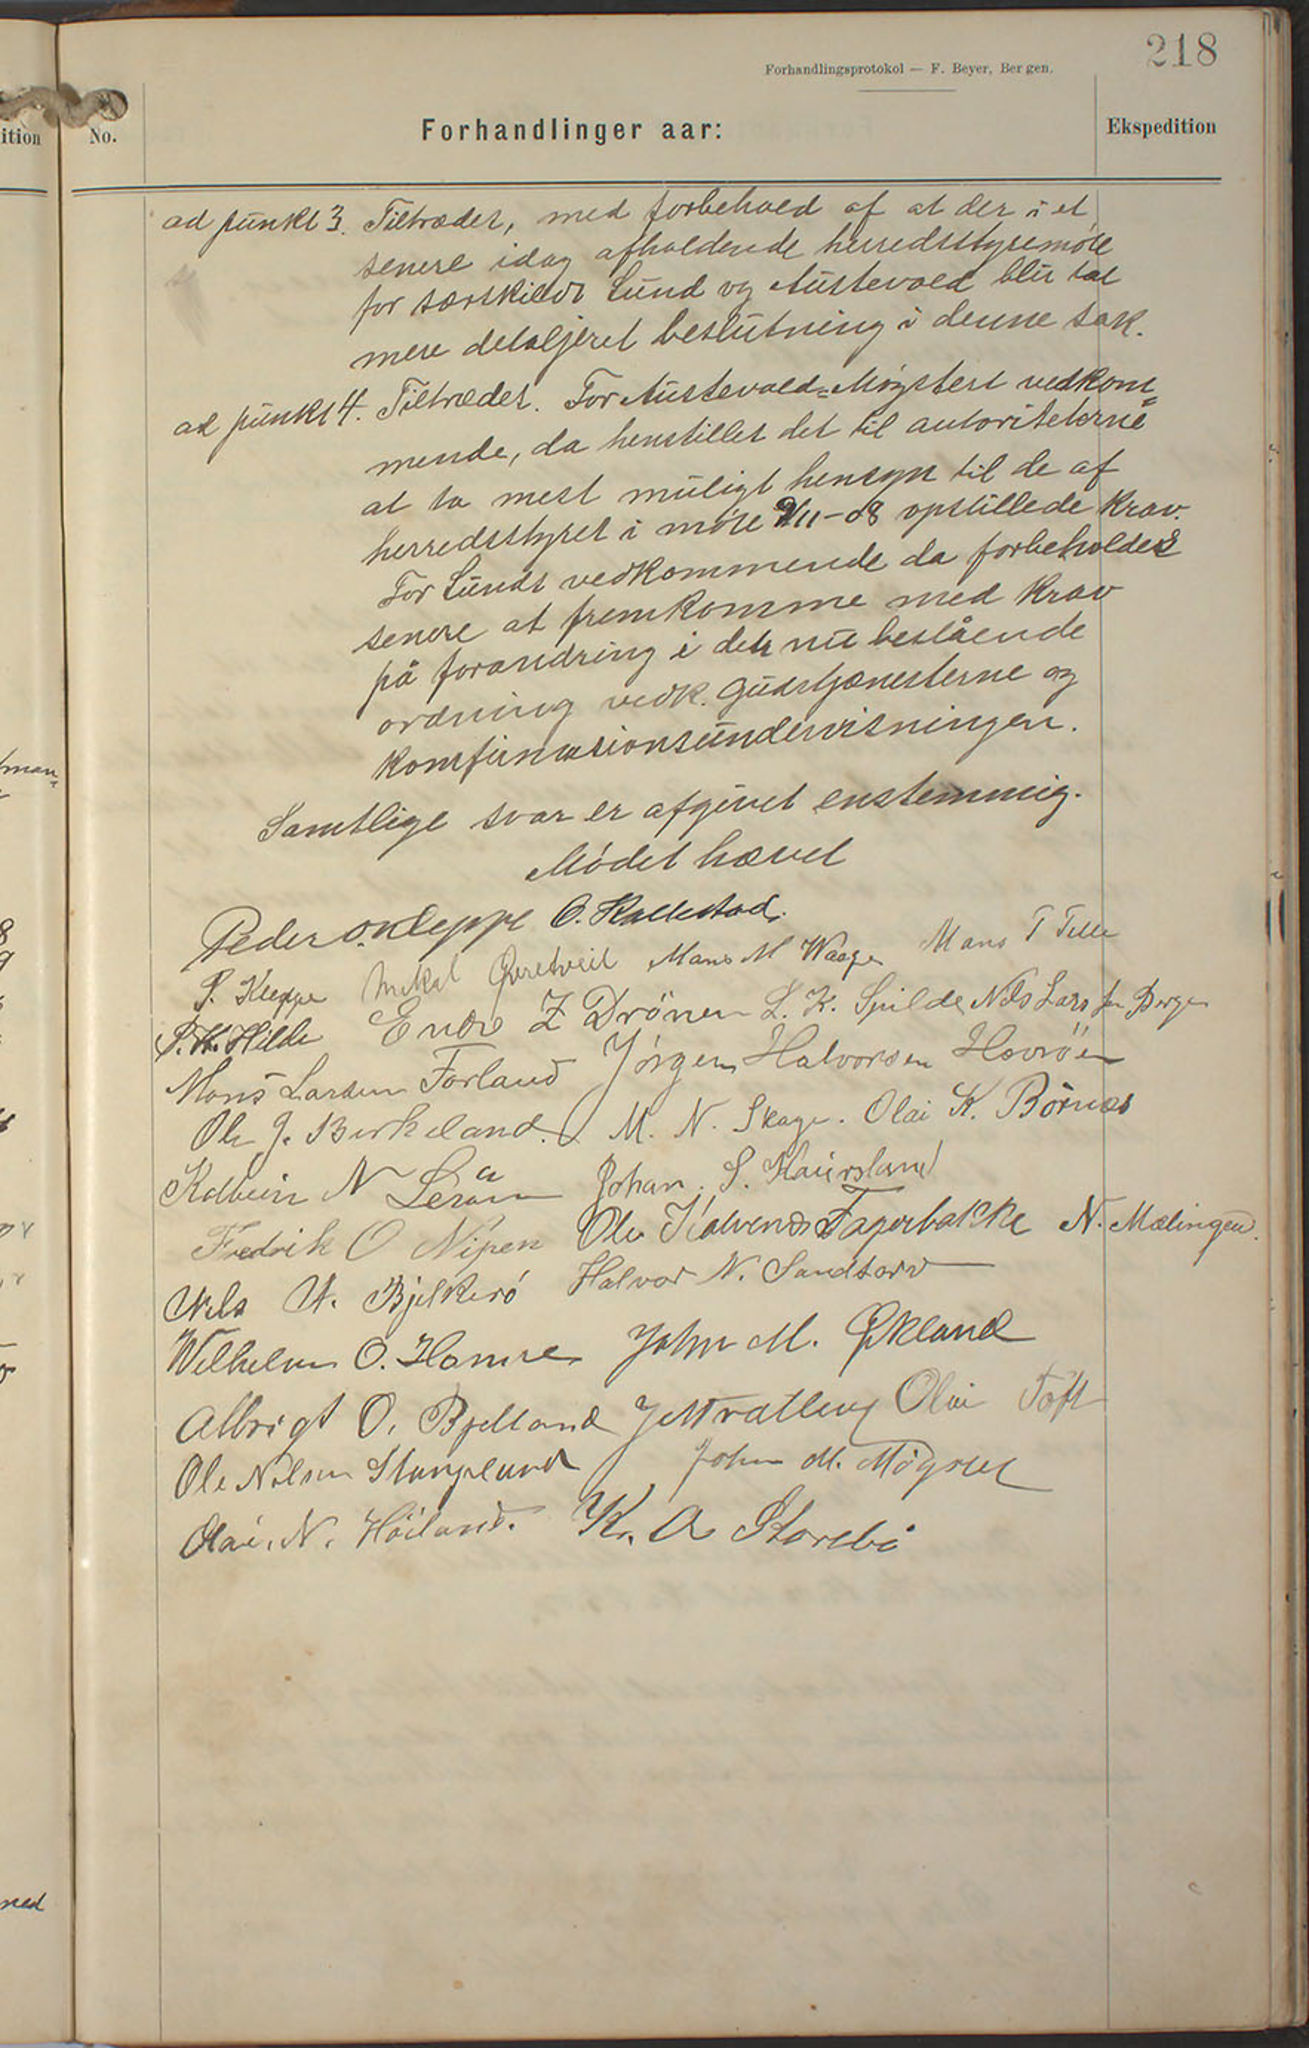 218
Forhandlingsprotokol — F. Beyer, Bergen.
ition No. Forhandlinger aar: Ekspedition
ad punkt 3. Tiltrædes, med forbehold af at der i et
senere idag afholdende herredsstyremöte
for særskildt Sund og Austevold blir tat
mere detaljeret beslutning i denne sak.
ad punkt 4. Tiltrædes. For Austevold-Møgsters vedkom=
mende, da henstilles det til autoriteterne
at ta mest muligt hensyn til de af
herredsstyret i möte 9/11-08 opstillede krav.
For Sunds vedkommende da forbeholdes
senere at fremkomme med krav
på forandring i den nu bestående
ordning vedk. gudstjænesterne og
konfirmasionsundervisningen.
Samtlige svar er afgivet enstemmig.
Mödet hævet
Peder O. Kleppe O. Kallestad.
S. Kleppe Mikal Qvretveit Mans M Waage Mans T Telle
Hilde Endre Z Drönen L. K. Spilde Nils Larssen Berge
Mons Larsen Forland Jörgen Halvorsen Hevröen
Ole J. Birkeland. M. N. Skage. Olai K. Börnes
Kolbein N Leröen Johan. S. Haursland
Fredrik O Nipen Ole Halvendsen Fagerbakke N. Mælingen.
Nels N. Bjelkerö Halvor N. Sandtorv
Wilhelm O. Hamre John M. Økland
Albrigt O. Bjelland Olai Toft
Ole Nilsen Stangeland John M. Møgster
Olai. N. Höiland. Kr. A Storebö
ned